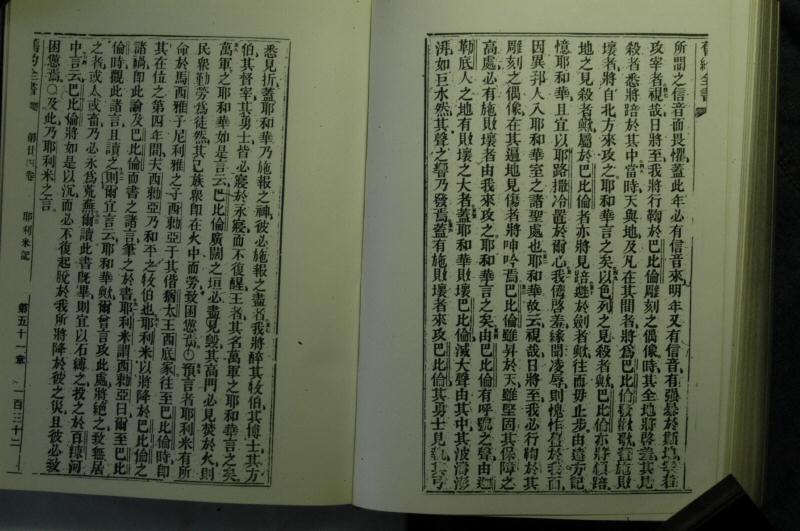 舊約全書
所聞之信音而畏懼蓋此年必有信音來明年又有信音有強暴於斯地
攻宰者視哉日將至我將行鞫於巴比倫雕刻之偶像時其全地將啓羞其見
殺者悉將踣於其中當時天與地及凡在其間者將爲巴比倫歌蓋施敗
壞者將自北方來攻之耶和華言之矣以色列之見殺者歟巴比倫亦將踣
地之見殺者歟屬於巴比倫者亦將見踣避於劍者歟往而毋止步由遠方記
憶耶和華且宜以耶路撒冷置於爾心我儕啓羞緣聞凌辱則愧怍於我面
因異邦人入耶和華室之諸聖處也耶和華故云視哉日將至我必行鞫於其
雕刻之偶像在其遍地見傷者將呻吟焉巴比倫雖昇於天雖堅固其保障之
高處必有施敗壞者由我來攻之耶和華言之矣由巴比倫有呼號之聲由迦
勒底人之地有敗壞之大者蓋耶和華敗壞巴比倫滅大聲由其中其波濤澎
湃如巨水然其聲之響乃發焉蓋有施敗壞者來攻巴比倫其勇士見執其弓
悉見折蓋耶和華乃施報之神彼必施報之盡者我將醉其牧伯其博士其方
伯其督宰其勇士皆必寢於永寢而不復醒王者其名萬軍之耶和華言之矣
萬軍之耶和華如是言云巴比倫廣闊之垣必盡見毀其高門必見焚於火則
民衆勤勞爲徒然其已族衆卽在火中而勞致困憊焉○預言者耶利米有所
命於馬西雅子尼利雅之子西勅亞於其偕猶太王西底家往至巴比倫時卽
其在位之第四年間夫西勅亞乃和平之牧伯也耶利米以將降於巴比倫之
諸禍卽此論及巴比倫而書之諸言筆之於書耶利米謂西勅亞曰爾至巴比
倫時觀此諸言且讀之則爾宜言云耶和華歟爾曾言攻此處將絕之致無居
之者或人或畜乃必永爲荒蕪爾讀此書旣畢則宜以石縛之投之於百辣河
中言云巴比倫將如是以沉而必不復起脫於我所將降於彼之災且彼必致
困憊焉○及此乃耶利米之言
舊約全書 第廿四卷 耶利米記 第五十一章 一百三十二